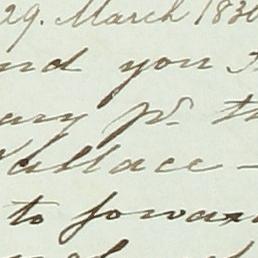 29. March 1830
nd you
ary pr. th
Wallace -
to forward